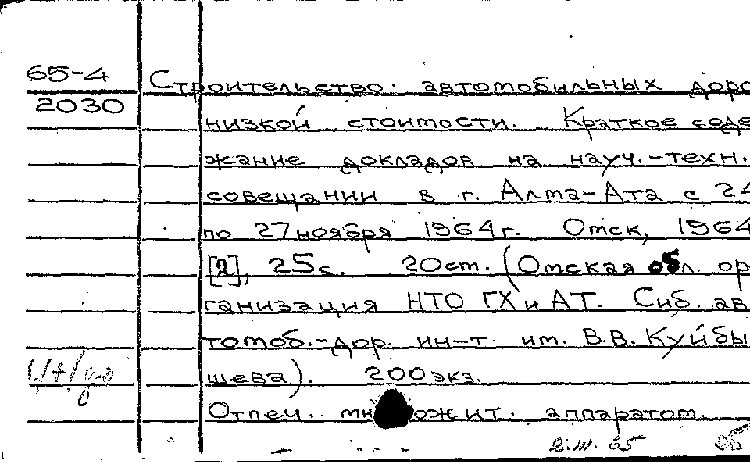 65-4 Строительство автомобильных доро
2030
низкой стоимости. Краткое соде
жание докладов на науч.-техн.
совещании в г. Алма-Ата с 24
по 27 ноября 1964 г. Омск, 1964
[2], 25с. 20 см. (Омская обл. ор
ганизация НТО ГХ и АТ. Сиб. ав
томоб.-дор. ин-т им. В.В. Куйбы
шева). 200 экз.
Отпеч. множит. аппаратом.